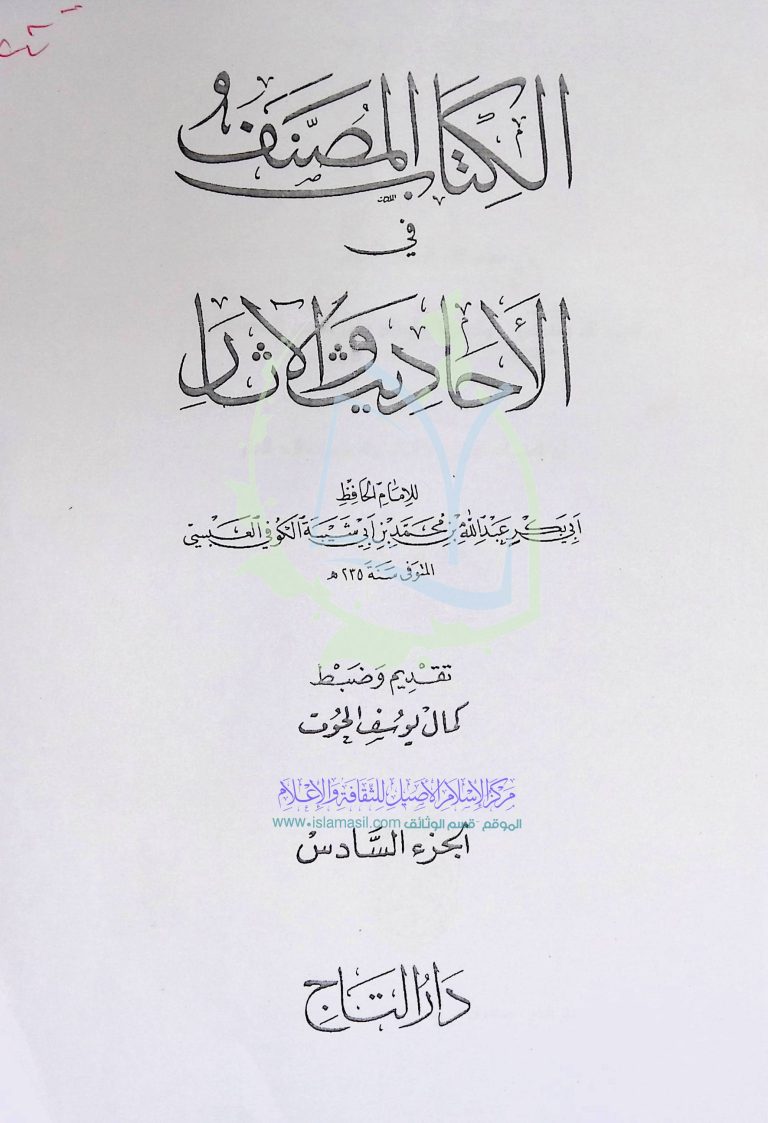 الكِتَاب المُصَنَّف
في
الأَحَادِيث وَالآثَار
للإمَام الحَافِظِ
أبي بَكر عَبْد الله بن محمَّد بن أبي شَيْبَة الكوفي العَبْسِي
المتوفى سَنَة ٢٣٥ هـ
تقديم وَضَبْط
كمال يوسُف الحوُت
مركز الإسلام الأصيل للثقافة والإعلام
الموقع - قسم الوثائق www.islamasil.com
الجزء السَّادس
دَارُ التَّاج